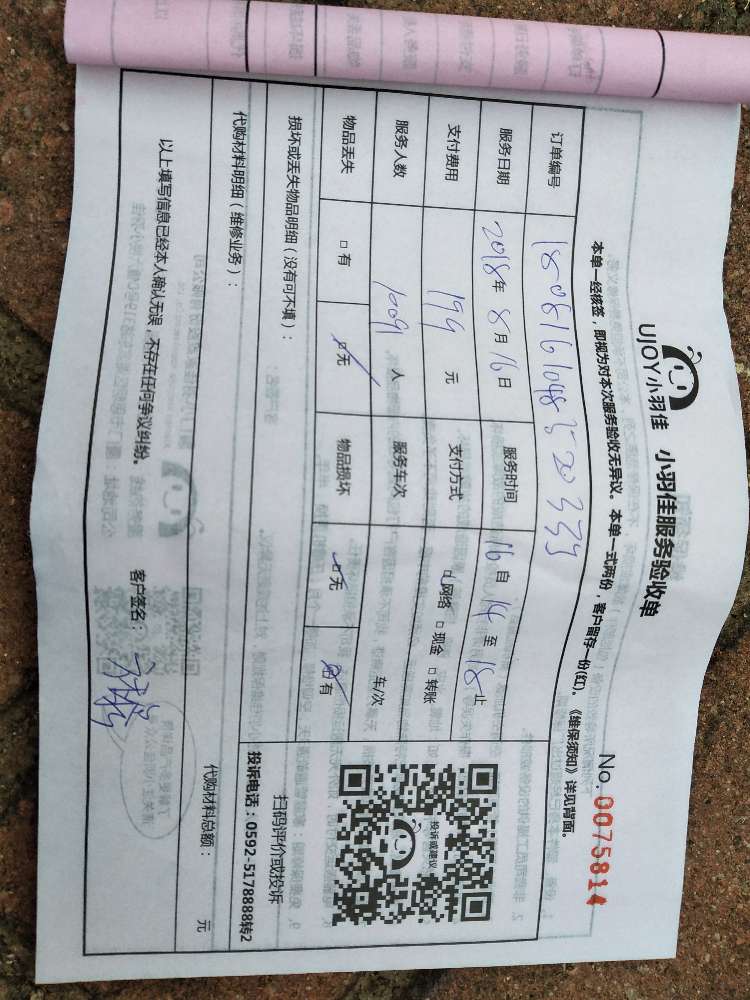 UJOY小羽佳 小羽佳服务验收单
No. 0075814
本单一经核签，即视为对本次服务验收无异议。本单一式两份，客户留存一份(红)。《维保须知》详见背面。
订单编号
服务日期 2018年 8月 16日 服务时间 16 自 14 至 18 止
支付费用 199 元 支付方式 网络 □ 现金 □ 转账
服务人数 人 服务车次 车/次
物品丢失 □ 有 □ 无 物品损坏 □ 无 □ 有
损坏或丢失物品明细（没有可不填）：
代购材料明细（维修业务）：
代购材料总额： 元
以上填写信息已经本人确认无误，不存在任何争议纠纷。
客户签名：
投诉或建议
扫码评价或投诉
投诉电话：0592-5178888转2